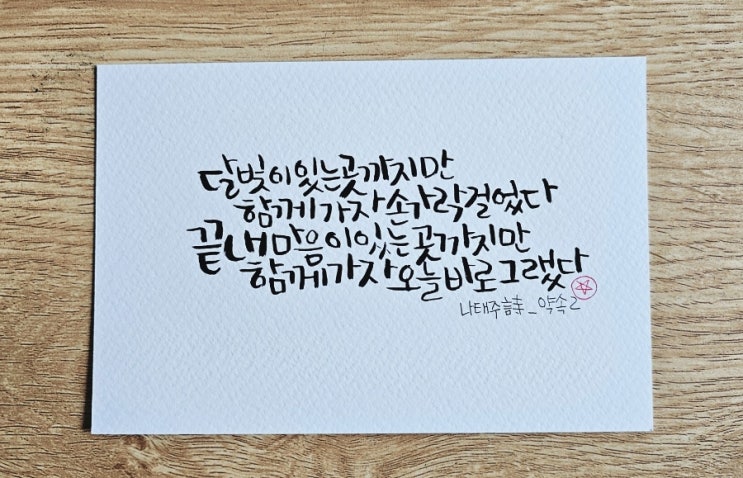 달빛이 있는 곳까지만
함께 가자 손가락 걸었다
끝내 마음이 있는 곳까지만
함께 가자 오늘 바로 그랬다
나태주 詩 _ 약속2